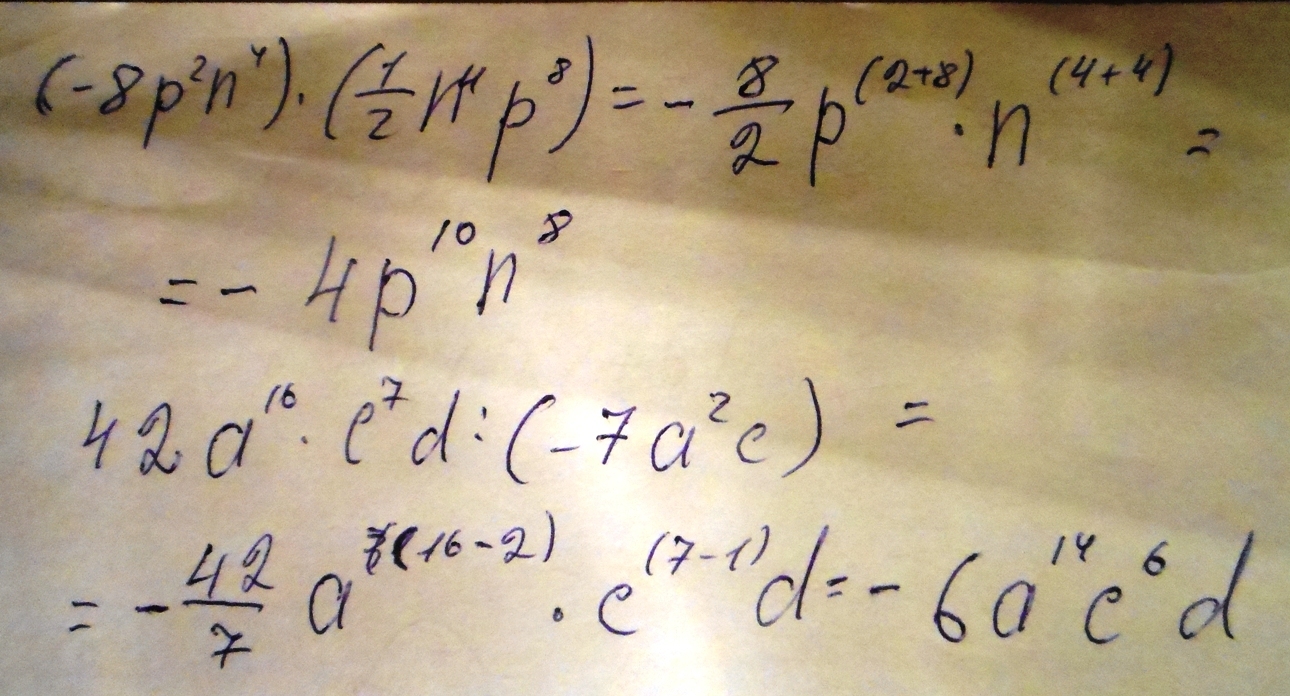 (-8p²n⁴)·(1/2 n⁴p⁸)=-8/2 p⁽²⁺⁸⁾·n⁽⁴⁺⁴⁾=
=-4p¹⁰n⁸
42a¹⁶·c⁷d:(-7a²c)=
=-42/7 a⁽¹⁶⁻²⁾·c⁽⁷⁻¹⁾d=-6a¹⁴c⁶d